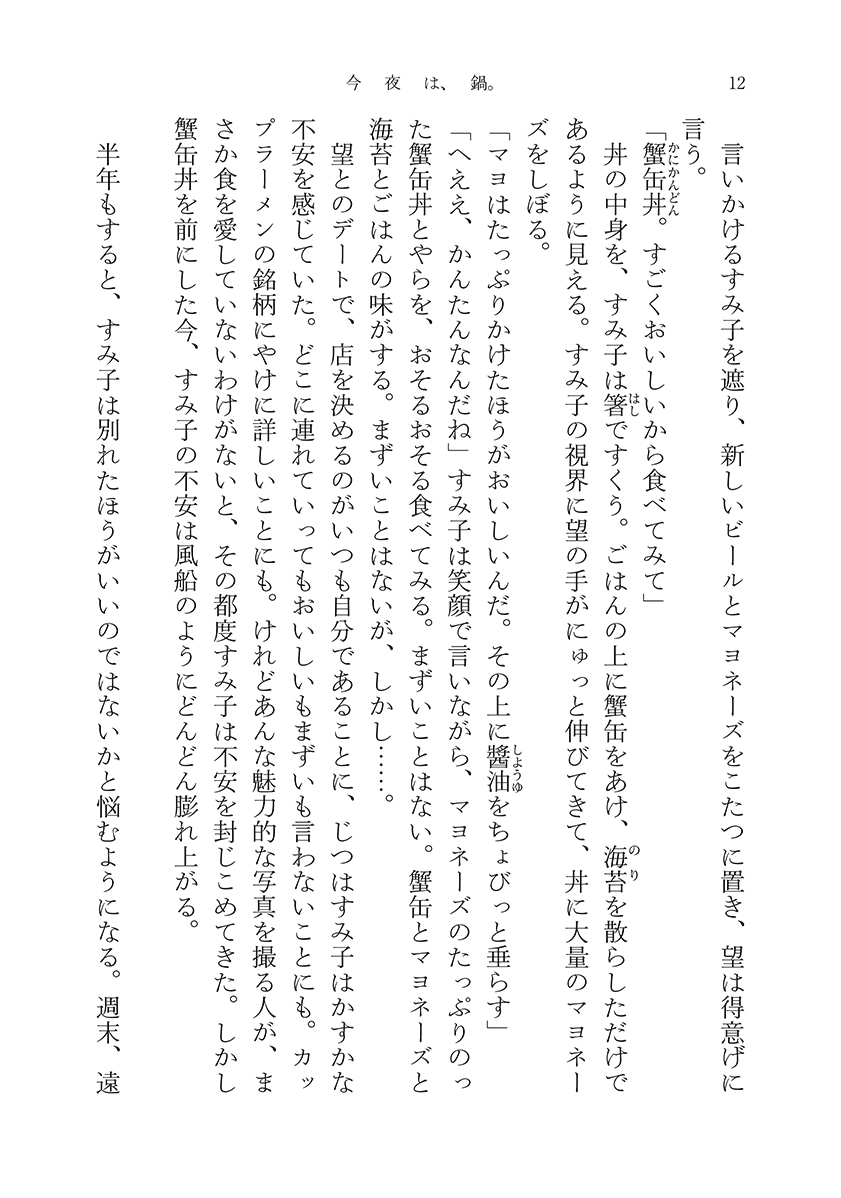 今夜は、鍋。
12
言いかけるすみ子を遮り、新しいビールとマヨネーズをこたつに置き、望は得意げに
言う。
「蟹缶丼。すごくおいしいから食べてみて」
かにかんどん
丼の中身を、すみ子は箸ですくう。ごはんの上に蟹缶をあけ、海苔を散らしただけで
はし
のり
あるように見える。すみ子の視界に望の手がにゅっと伸びてきて、丼に大量のマヨネー
ズをしぼる。
「マヨはたっぷりかけたほうがおいしいんだ。その上に醬油をちょびっと垂らす」
しょうゆ
「へええ、かんたんなんだね」すみ子は笑顔で言いながら、マヨネーズのたっぷりのっ
た蟹缶丼とやらを、おそるおそる食べてみる。まずいことはない。蟹缶とマヨネーズと
海苔とごはんの味がする。まずいことはないが、しかし……。
望とのデートで、店を決めるのがいつも自分であることに、じつはすみ子はかすかな
不安を感じていた。どこに連れていってもおいしいもまずいも言わないことにも。カッ
プラーメンの銘柄にやけに詳しいことにも。けれどあんな魅力的な写真を撮る人が、ま
さか食を愛していないわけがないと、その都度すみ子は不安を封じこめてきた。しかし
蟹缶丼を前にした今、すみ子の不安は風船のようにどんどん膨れ上がる。
半年もすると、すみ子は別れたほうがいいのではないかと悩むようになる。週末、遠